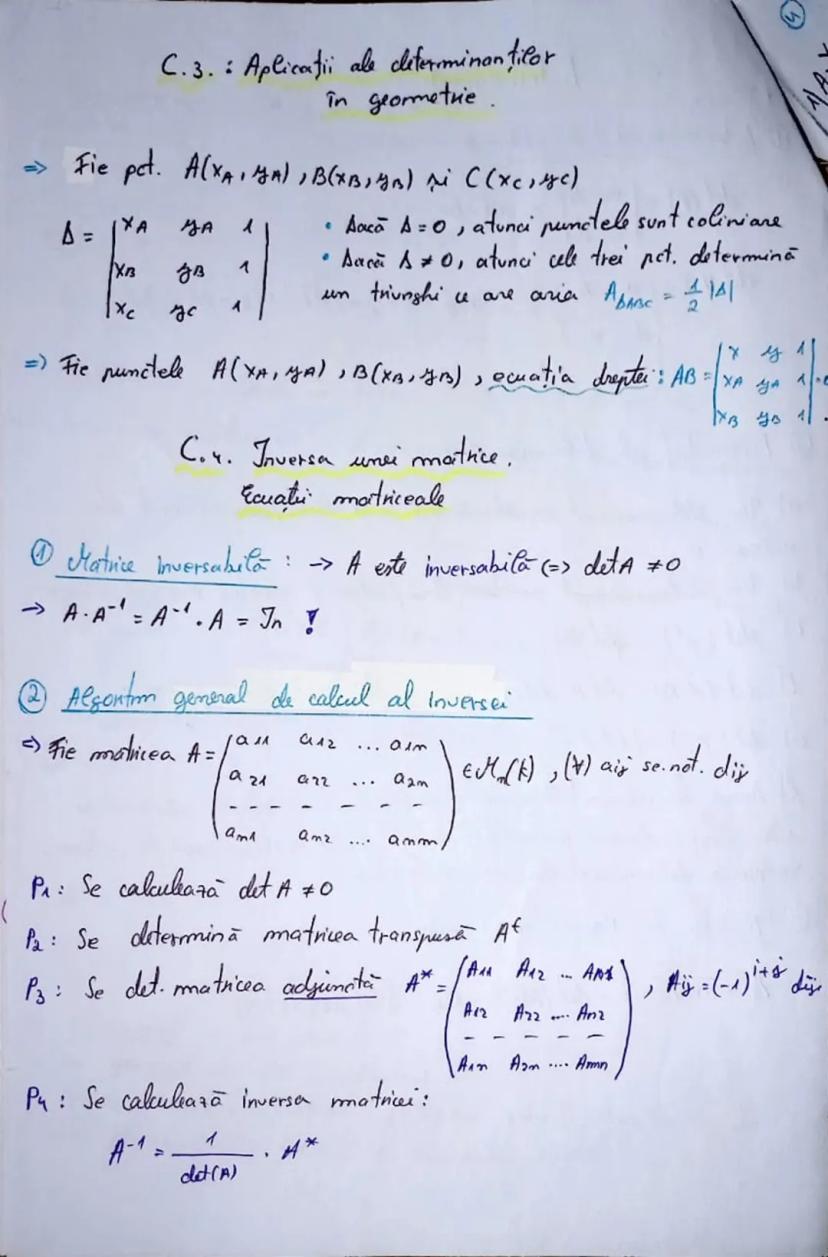 4
MAT
C.3. : Aplicații ale determinanților
în geometrie.
=> Fie pct. A(xA, yA), B(xB, yB) și C(xC, yC)
Δ = |xA yA 1|
|xB yB 1|
|xC yC 1|
• Dacă Δ = 0, atunci punctele sunt coliniare
• Dacă Δ ≠ 0, atunci cele trei pct. determină
un triunghi ce are aria AΔABC = 1/2 |Δ|
=> Fie punctele A(xA, yA), B(xB, yB), ecuația dreptei: AB = |x y 1|
|xA yA 1| = 0
|xB yB 1|
C.4. Inversa unei matrice.
Ecuații matriceale
① Matrice inversabilă: → A este inversabilă <=> det A ≠ 0
→ A·A⁻¹ = A⁻¹·A = In !
② Algoritm general de calcul al inversei
=> Fie matricea A = (a11 a12 ... a1n
a21 a22 ... a2n
- - - - - - -
an1 an2 ... ann) ∈ Mn(k), (∀) aij se not. dij
P1: Se calculează det A ≠ 0
P2: Se determină matricea transpusă Aᵗ
P3: Se det. matricea adjunctă A* = (A11 A12 ... An1
A12 A22 .... An2
- - - - - -
A1n A2n .... Ann), Aij = (-1)^(i+j) dij
P4: Se calculează inversa matricei:
A⁻¹ = 1/det(A) · A*